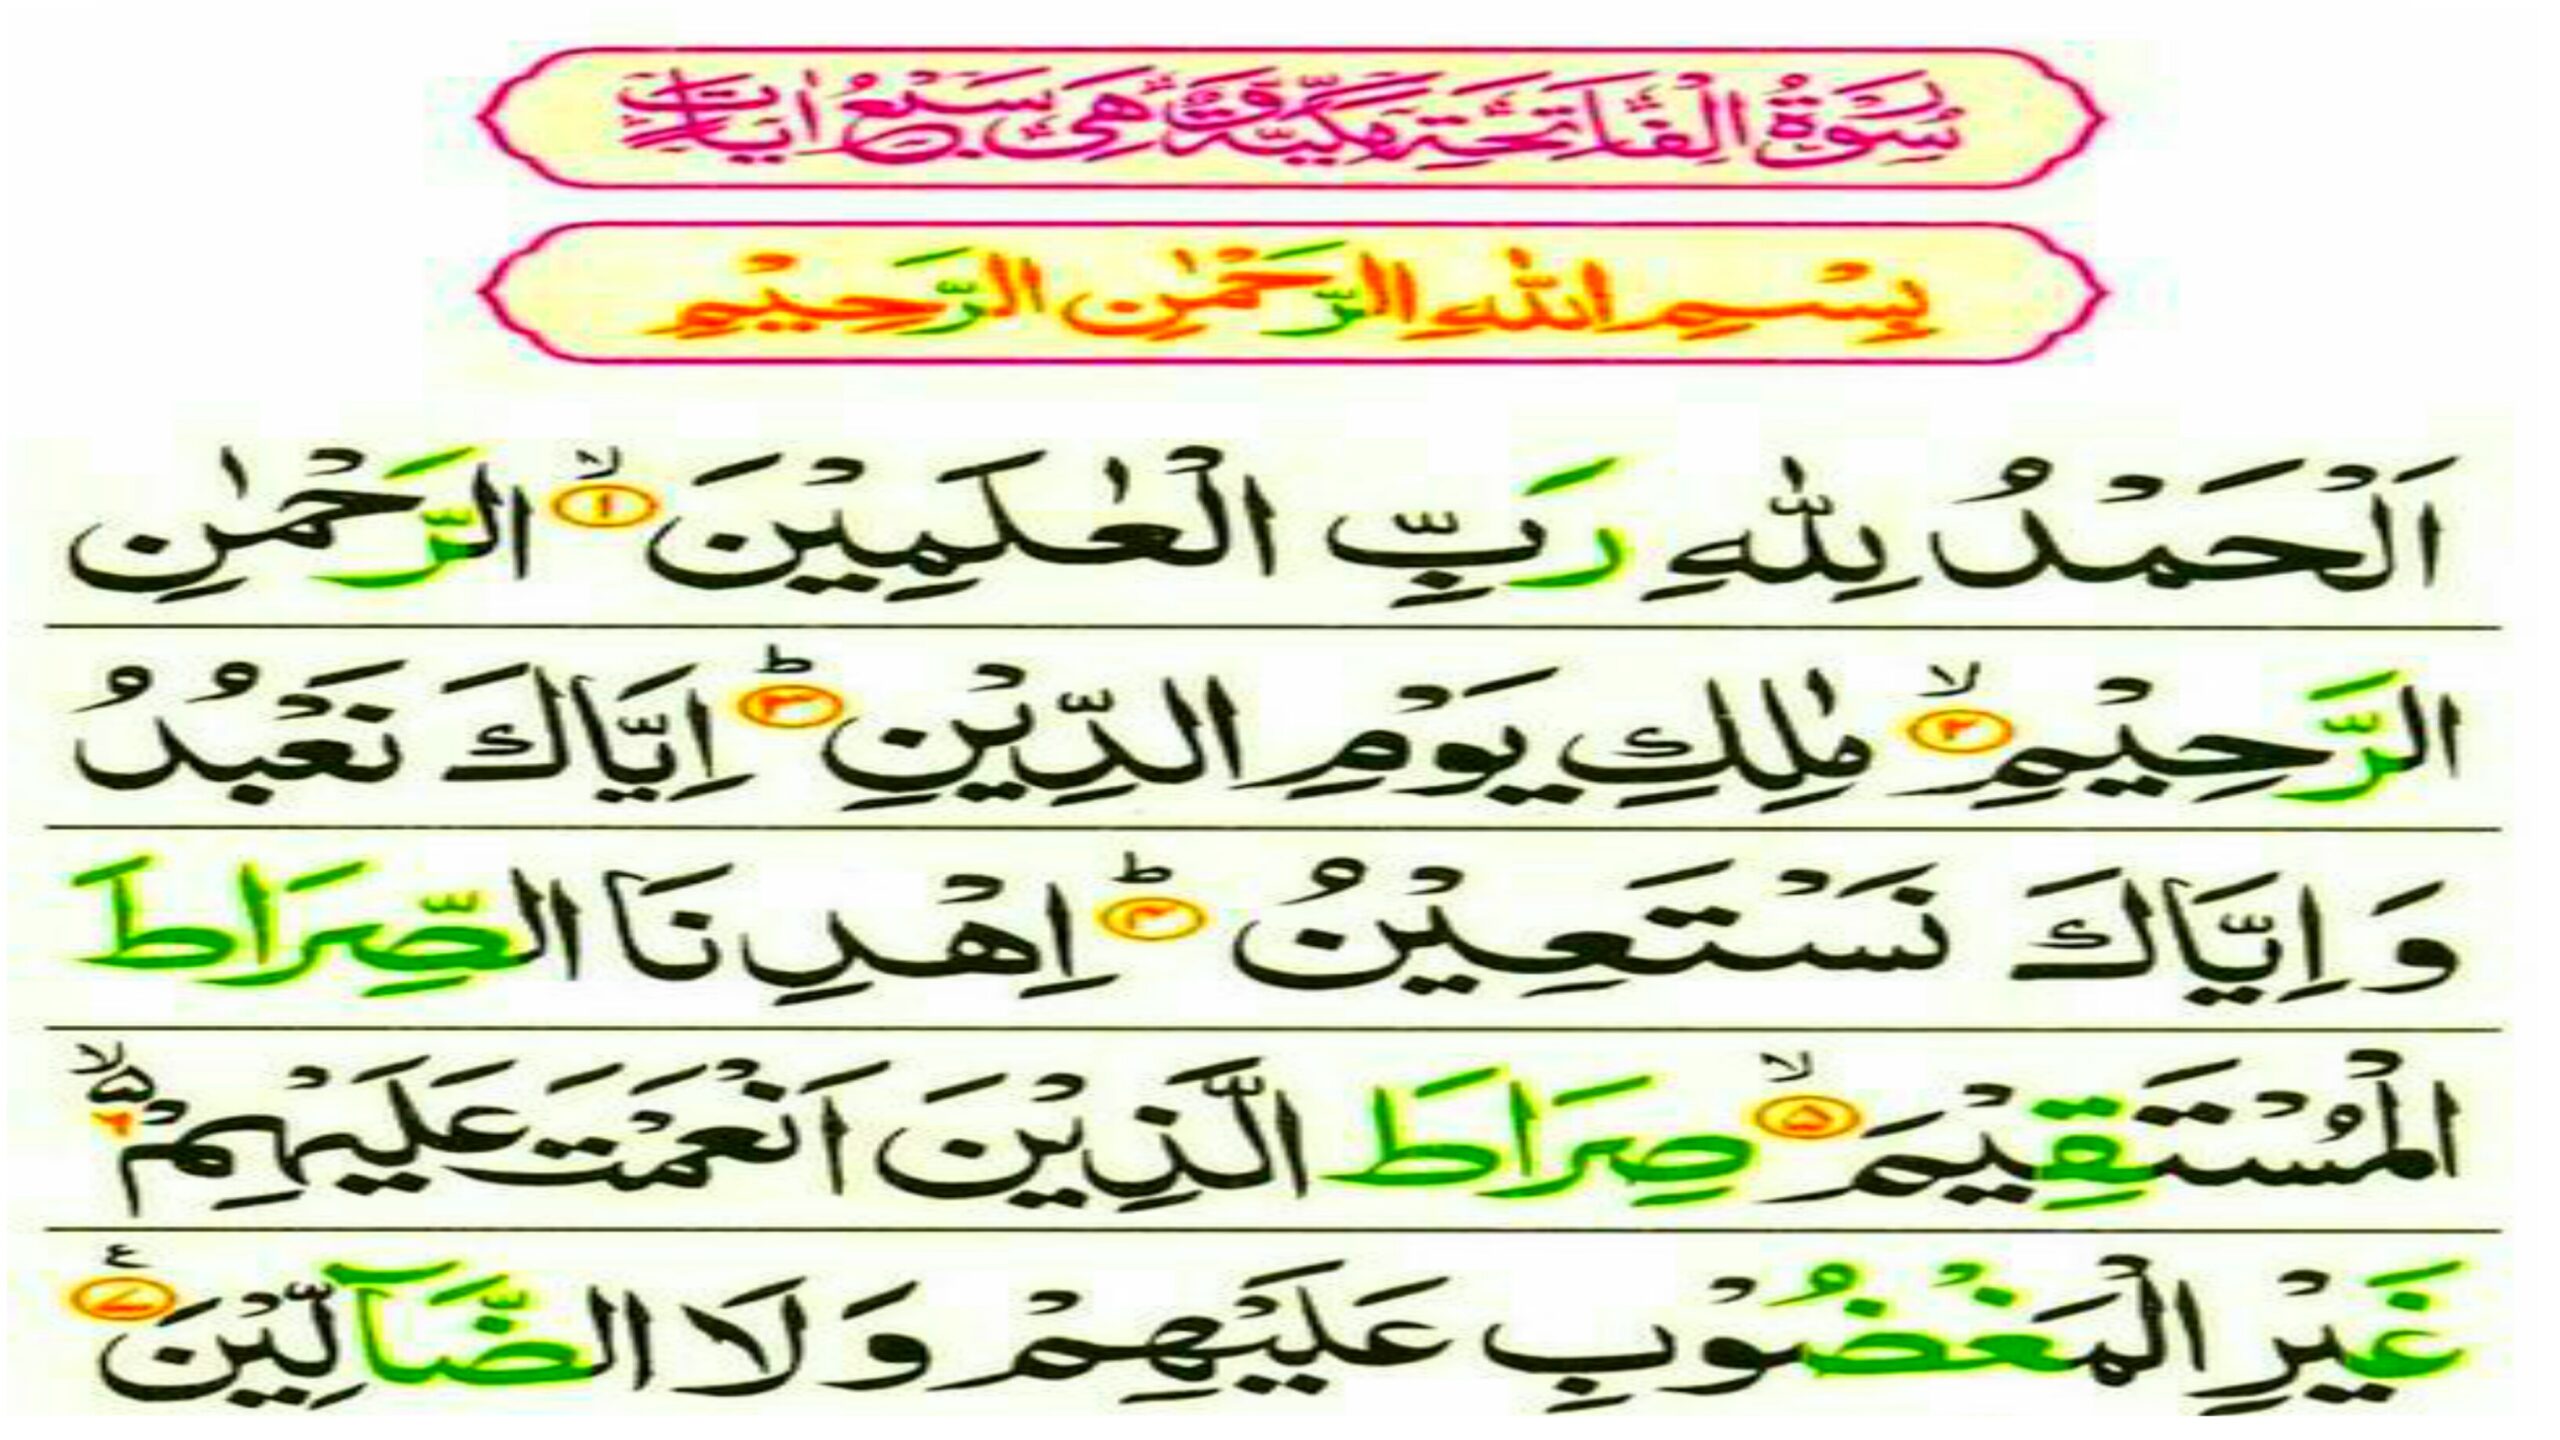 سُوْرَةُ الْفَاتِحَةِ مَكِّيَّةٌ وَّهِىَ سَبْعُ اٰيَاتٍ
بِسْمِ اللّٰهِ الرَّحْمٰنِ الرَّحِيْمِ
اَلْحَمْدُ لِلّٰهِ رَبِّ الْعٰلَمِيْنَ ۙ﴿۱﴾ الرَّحْمٰنِ
الرَّحِيْمِ ۙ﴿۲﴾ مٰلِكِ يَوْمِ الدِّيْنِ ؕ﴿۳﴾ اِيَّاكَ نَعْبُدُ
وَ اِيَّاكَ نَسْتَعِيْنُ ؕ﴿۴﴾ اِهْدِنَا الصِّرَاطَ
الْمُسْتَقِيْمَ ۙ﴿۵﴾ صِرَاطَ الَّذِيْنَ اَنْعَمْتَ عَلَيْهِمْ ۙ۬ ۶
غَيْرِ الْمَغْضُوْبِ عَلَيْهِمْ وَ لَا الضَّآلِّيْنَ ﴿۷﴾ ع